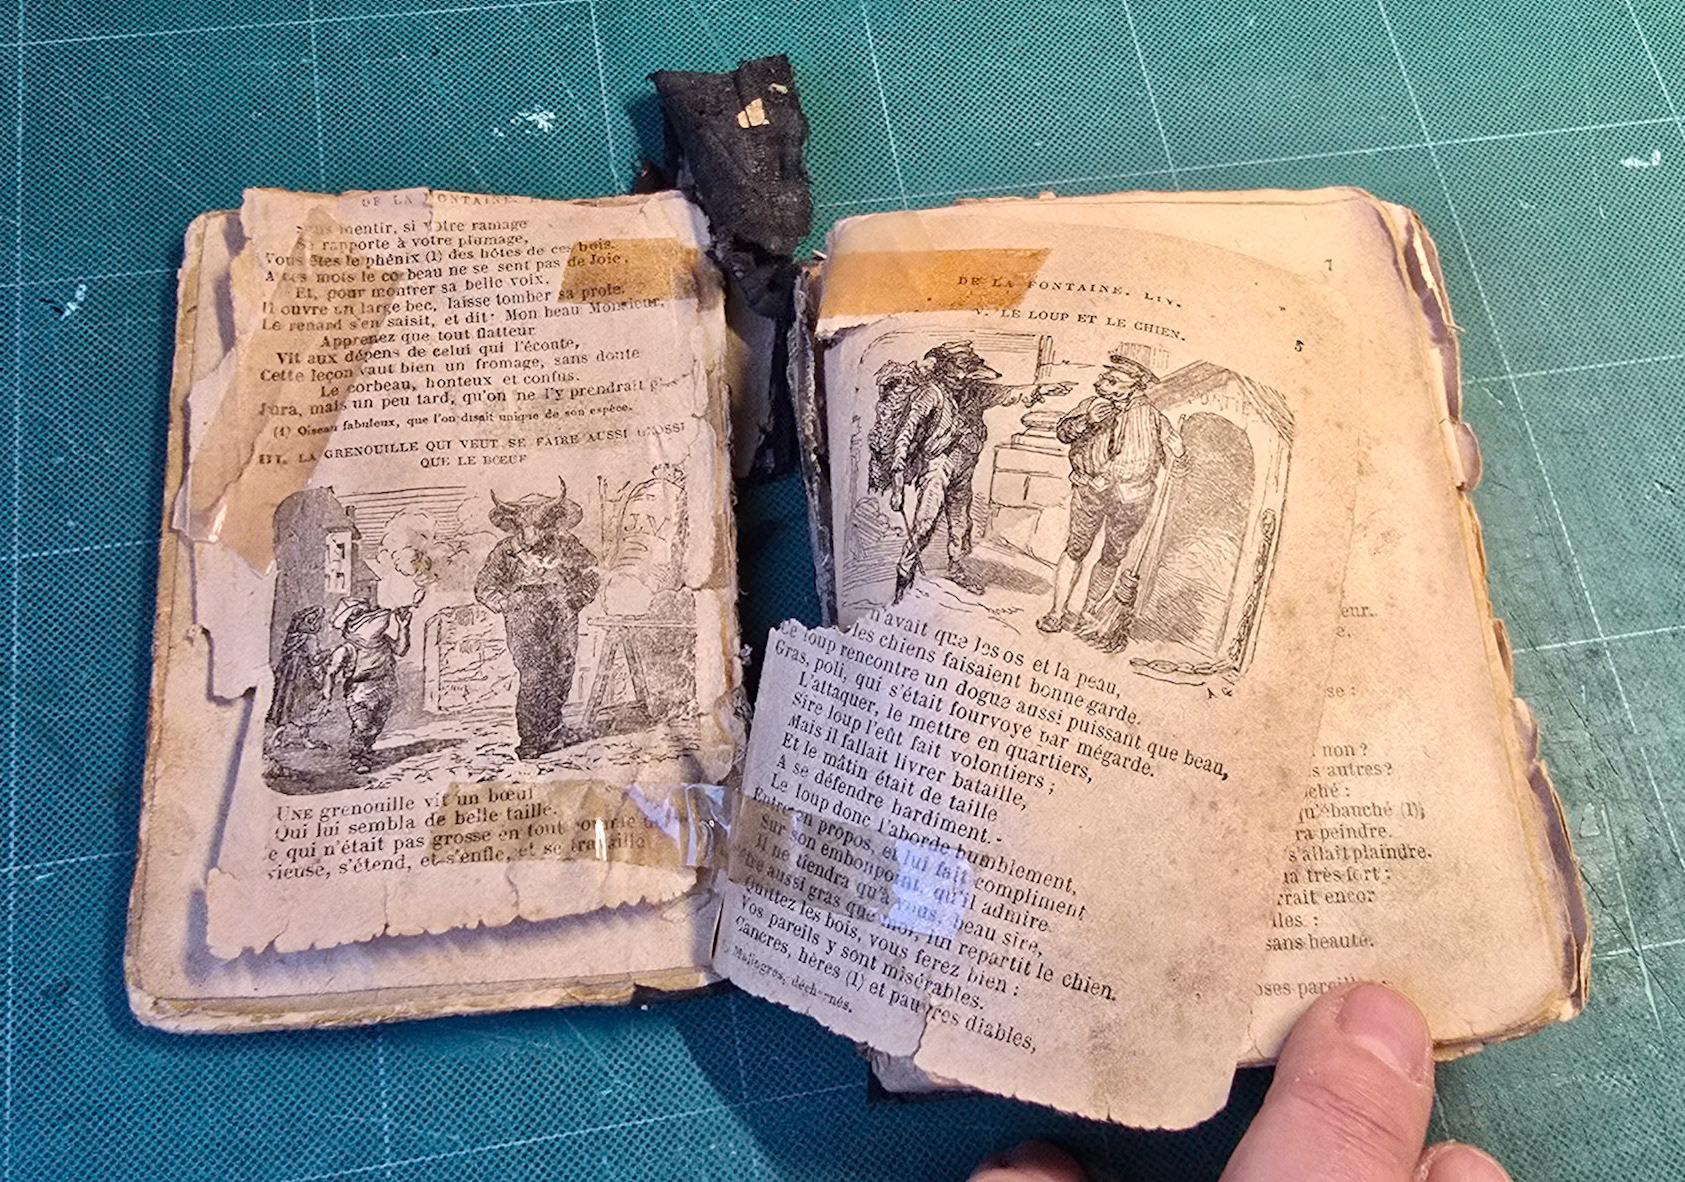 DE LA FONTAINE.
mentir, si votre ramage
Se rapporte à votre plumage,
Vous êtes le phénix (1) des hôtes de ces bois.
A ces mots le corbeau ne se sent pas de Joie,
Et, pour montrer sa belle voix,
Il ouvre un large bec, laisse tomber sa proie.
Le renard s'en saisit, et dit: Mon beau Monsieur,
Apprenez que tout flatteur
Vit aux dépens de celui qui l'écoute,
Cette leçon vaut bien un fromage, sans doute
Le corbeau, honteux et confus,
Jura, mais un peu tard, qu'on ne l'y prendrait
(1) Oiseau fabuleux, que l'on disait unique de son espèce.
III. LA GRENOUILLE QUI VEUT SE FAIRE AUSSI GROSSE
QUE LE BŒUF
UNE grenouille vit un bœuf
Qui lui sembla de belle taille.
e qui n'était pas grosse en tout comme
vieuse, s'étend, et s'enfle, et se travaille
7
DE LA FONTAINE. LIV.
5
V. LE LOUP ET LE CHIEN.
n'avait que les os et la peau,
les chiens faisaient bonne garde.
Ce loup rencontre un dogue aussi puissant que beau,
Gras, poli, qui s'était fourvoyé par mégarde.
L'attaquer, le mettre en quartiers,
Sire loup l'eût fait volontiers;
Mais il fallait livrer bataille,
Et le mâtin était de taille
A se défendre hardiment.
Le loup donc l'aborde humblement,
Entre en propos, et lui fait compliment
Sur son embonpoint, qu'il admire.
Il ne tiendra qu'à vous, beau sire,
tre aussi gras que moi, lui repartit le chien.
Quittez les bois, vous ferez bien :
Vos pareils y sont misérables.
Cancres, hères (1) et pauvres diables,
Maliogres, déch
nés.
eur..
e.
se :
non ?
s autres?
ché :
qu'ébauché (1);
ra peindre.
s'allait plaindre.
a très fort ;
rrait encor
lles :
sans beauté.
oses